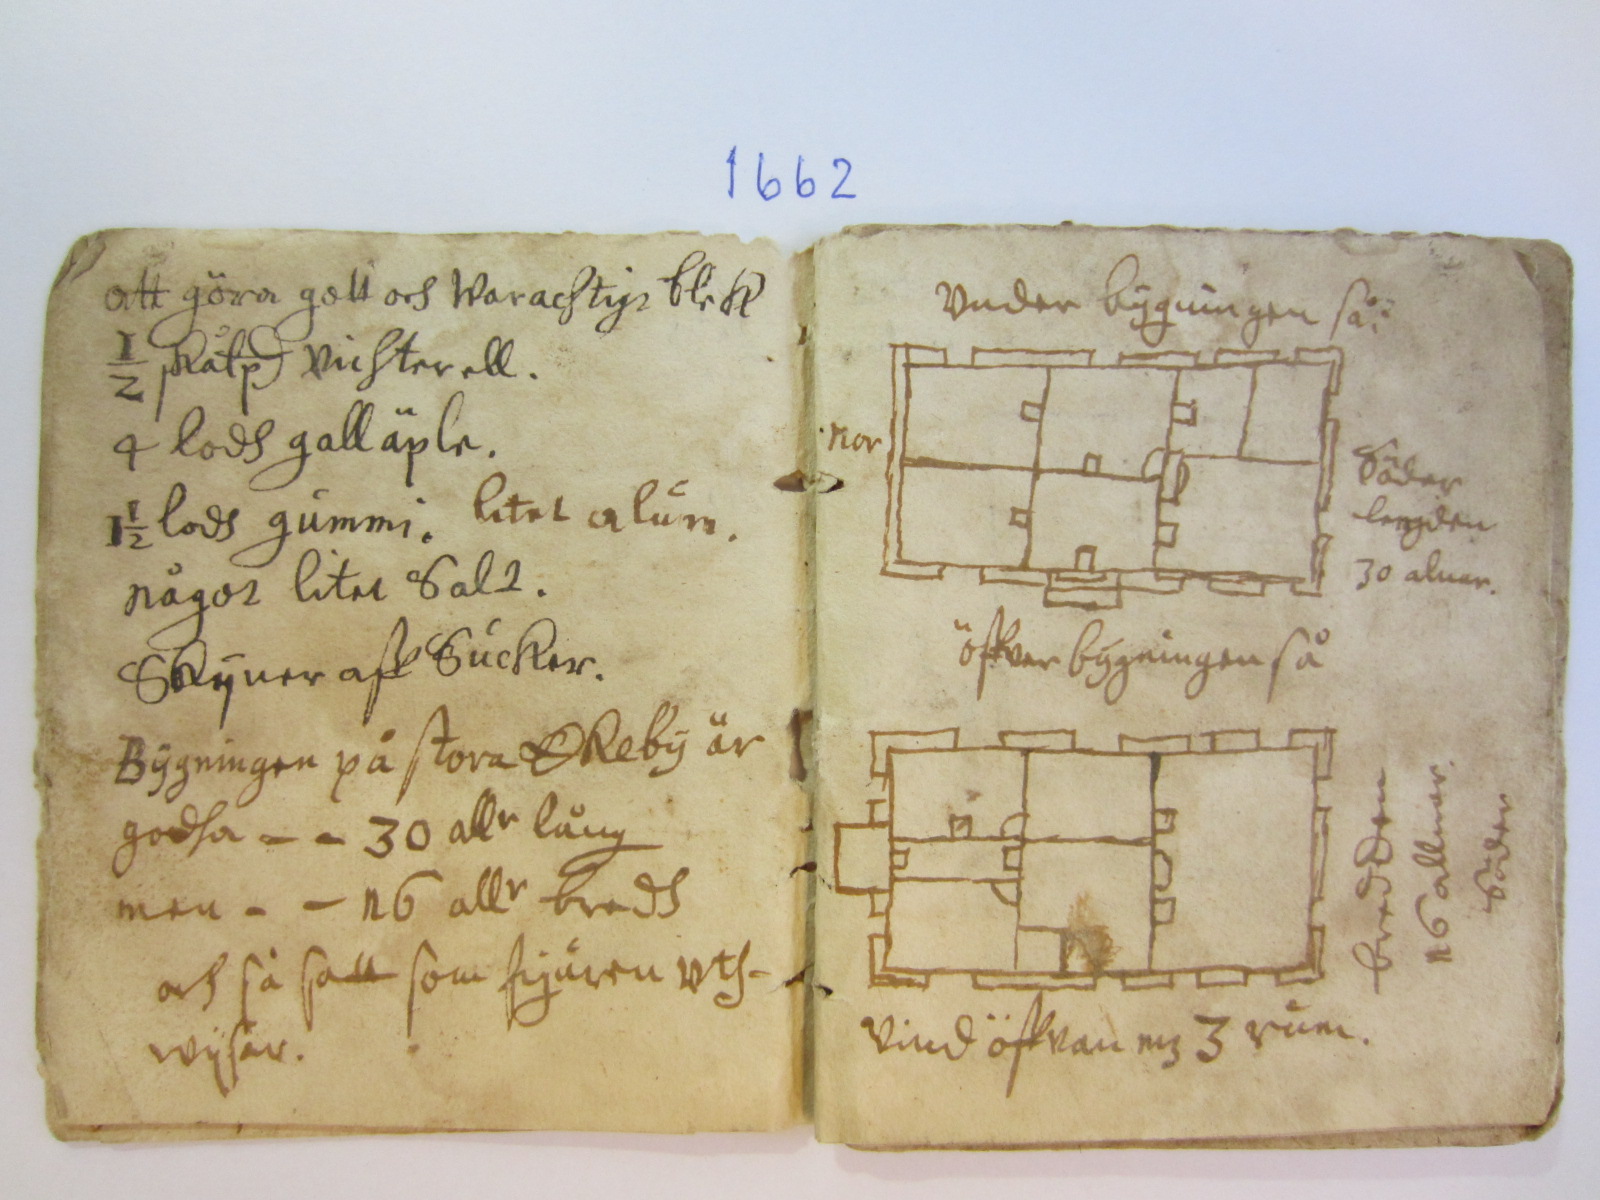 1662
att göra gott och Warachtigt blek
1/2 skålp vichterell.
4 lodh galläple.
1 1/2 lodh gummi. litet alum.
något litet Salt.
Skÿver aff Sucker.
Bÿgningen på stora Ekebÿ är
godha - - 30 allr lång
men - - 16 allr bredh
och så satt som figuren vth-
wÿsar.
Vnder bÿgningen så:
nor
Söder
lengden
30 alnar.
öffver bÿgningen så
bredden
16 allnar.
Söder
Vind öffvan 3 rum.